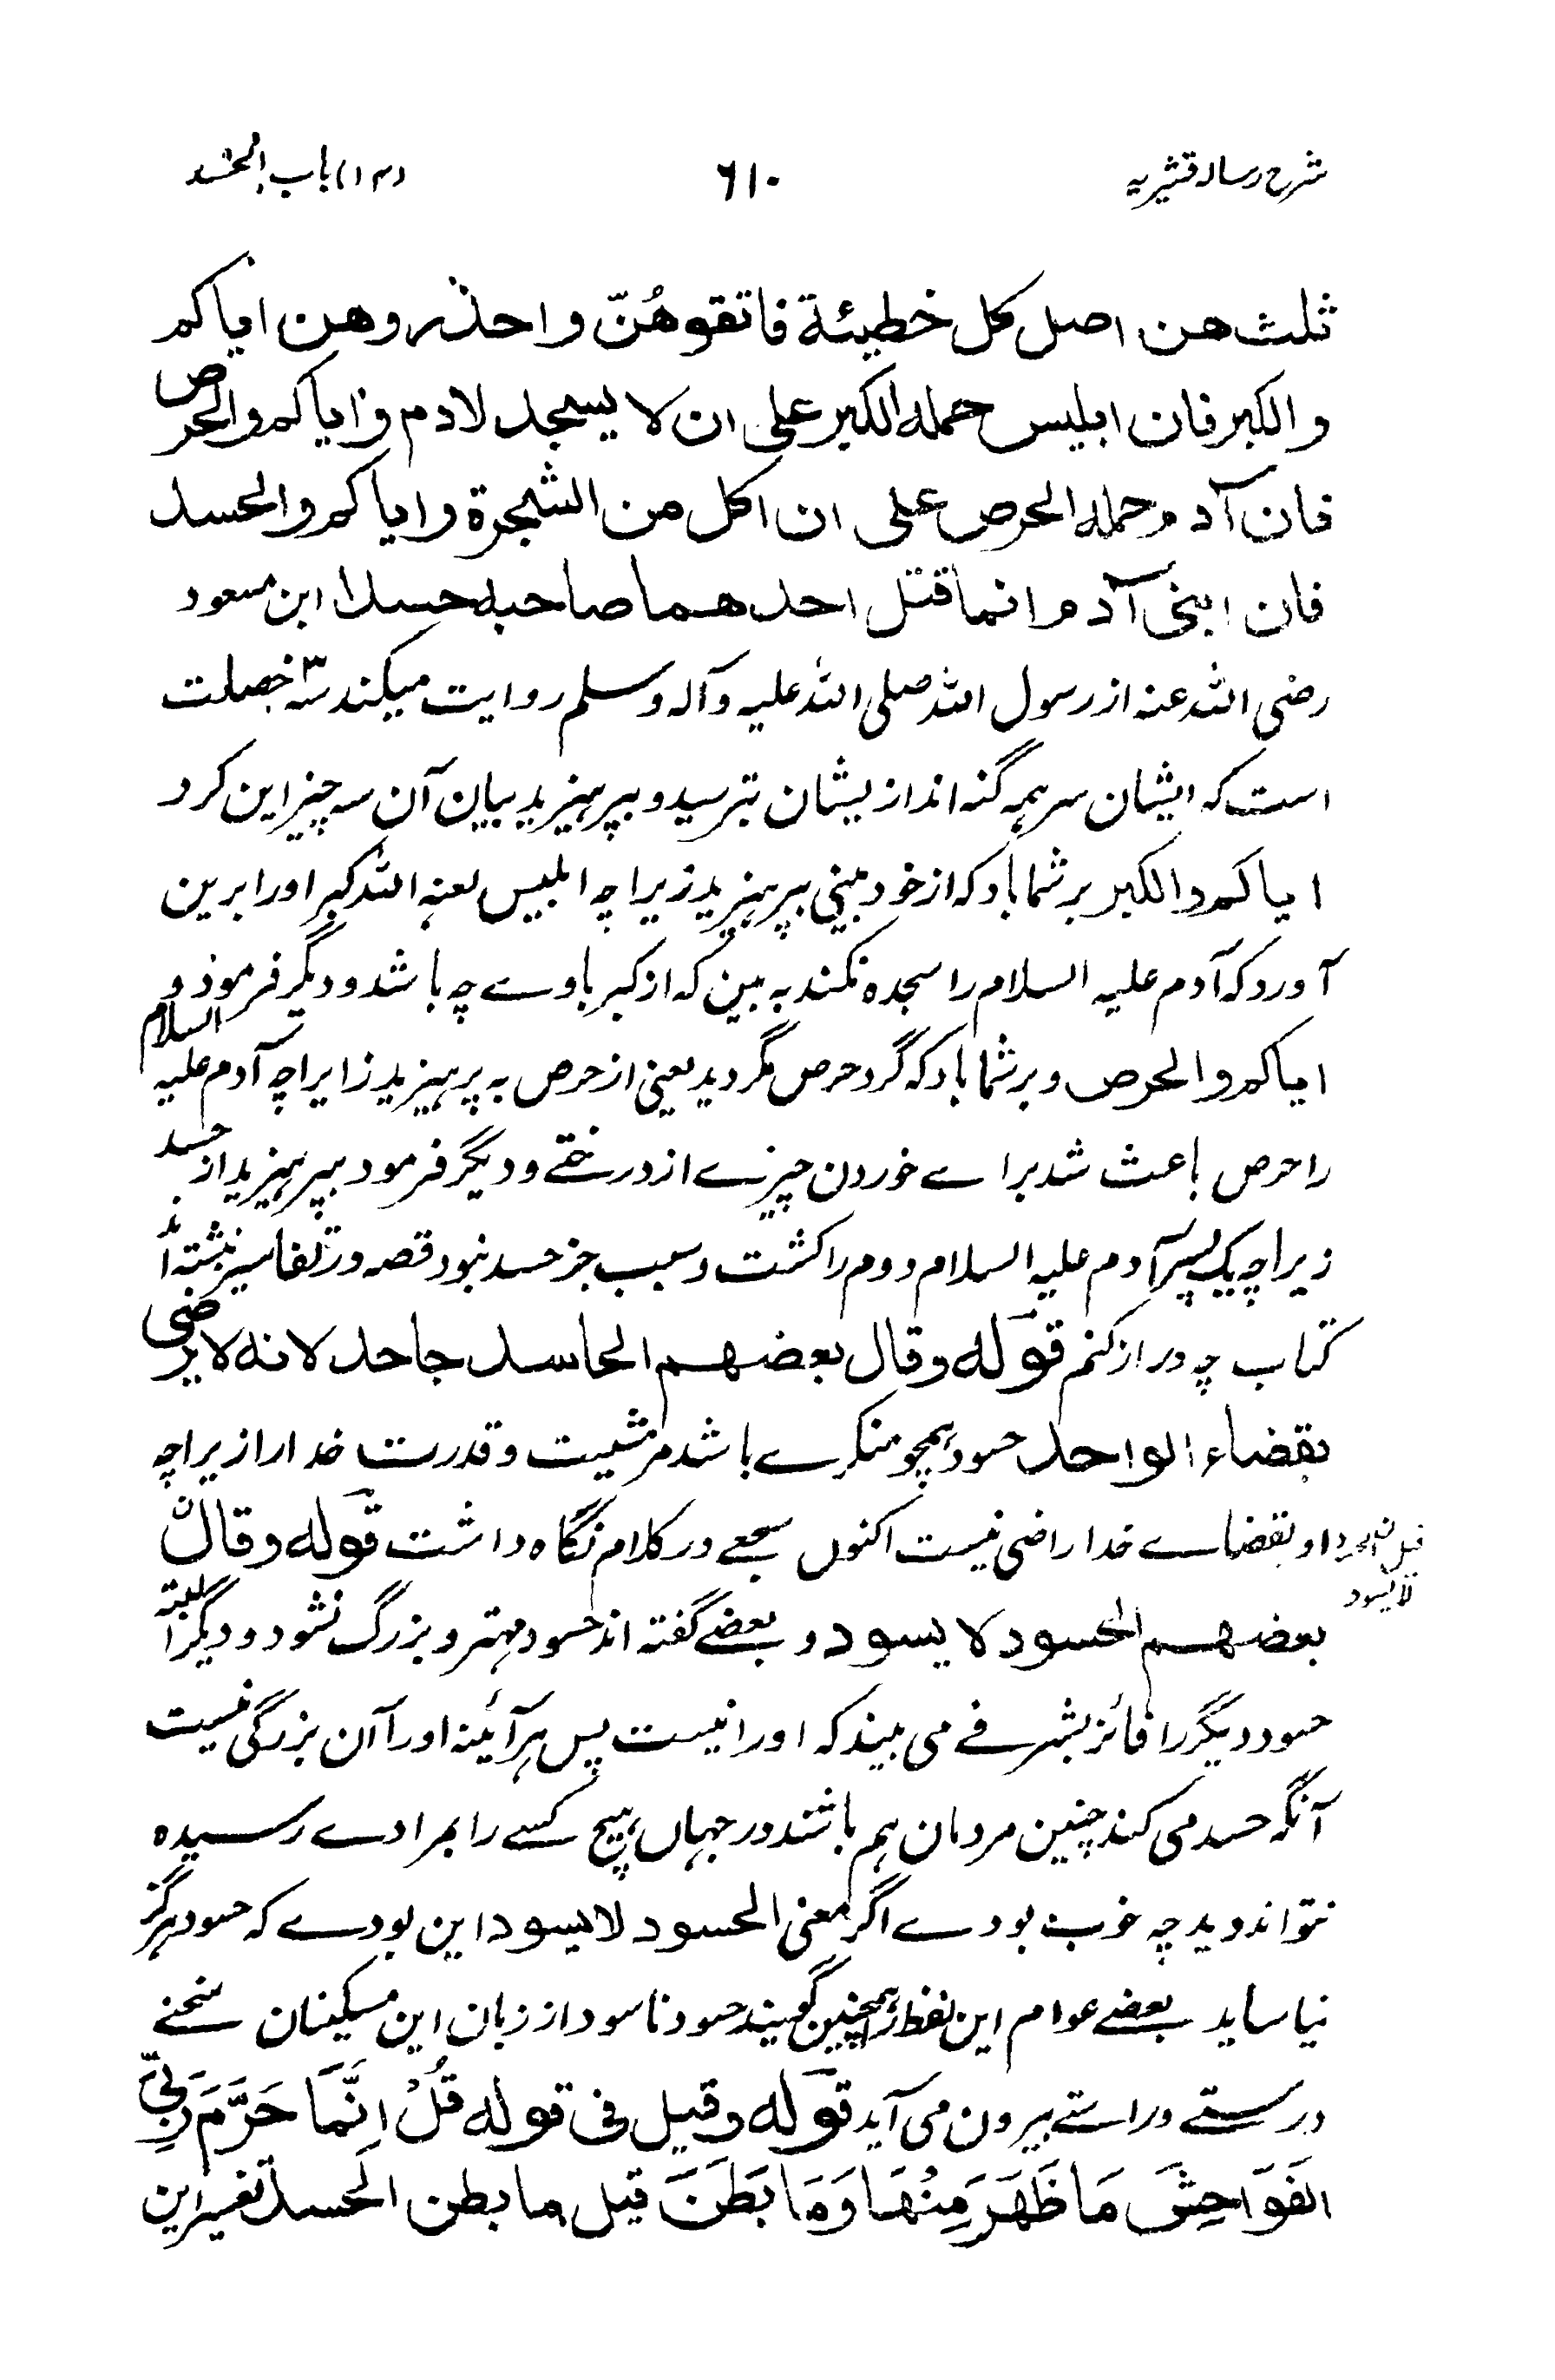 شرح رسالہ قشیریہ
۶۱۰
(۱۳) باب الحسد
ثلث هن اصل كل خطيئة فاتقوهُنّ واحذروهن اياكم
والكبر فان ابليس حمله الكبر على ان لا يسجد لادم واياكم والحرص
فان آدم حمله الحرص على ان اكل من الشجرة واياكم والحسد
فان ابنى آدم انما قتل احدهما صاحبه حسدا ابن مسعود
رضی اللہ عنہ از رسول اللہ صلی اللہ علیہ وآلہ وسلم روایت میکند سہ ۳ خصلت
است کہ ایشان سر ہمہ گنہ اند از یشان بترسید و بپرہیزید بیان آن سہ چیز این کرد
ایاکم والکبر بر شما باد کہ از خود بینی بپرہیزید زیراچہ ابلیس لعنہ اللہ کبر او را برین
آورد کہ آدم علیہ السلام را سجدہ نکند بہ بین کہ از کبر باوے چہ باشد و دیگر فرمود و
ایاکم والحرص و بر شما باد کہ گرد حرص مگردید یعنی از حرص بہ پرہیزید زایراچہ آدم علیہ السلام
را حرص باعث شد براے خوردن چیزے از درختے و دیگر فرمود بپرہیزید از حسد
زیراچہ یک پسر آدم علیہ السلام دوم را کشت و سبب جز حسد نبود قصہ در تفاسیر نبشتہ اند
کتاب چہ دراز کنم قوله وقال بعضهم الحاسد جاحد لانه لا يرضى
بقضاء الواحد حسود ہمچو منکرے باشد مر مشیت و قدرت خدا را زیراچہ
او بقضاے خدا راضی نیست اکنوں سجعے در کلام نگاہ داشت قوله وقال
لا یسود
بعضهم الحسود لا يسود و بعضے گفتہ اند حسود مہتر و بزرگ نشود و دیگر البتہ
حسود دیگر را فائز بشرفے می بیند کہ او را نیست پس ہر آئینہ او را آن بزرگی نیست
آنگہ حسد می کند چنین مردمان ہم باشند در جہاں ہیچ کسے را بمرادے رسیدہ
نتواند دید چہ خوب بودے اگر معنی الحسود لا یسود این بودے کہ حسود ہرگز
نیاساید بعضے عوام این لفظ را ہمچنین گویند حسود ناسود از زبان این مسکینان سخنے
درستے و راستے بیرون می آید قوله وقيل فى قوله قُلْ اِنَّمَا حَرَّمَ رَبِّيَ
الفَوَاحِشَ مَا ظَهَرَ مِنْهَا وَمَا بَطَنَ قيل ما بطن الحسد تفسیر این